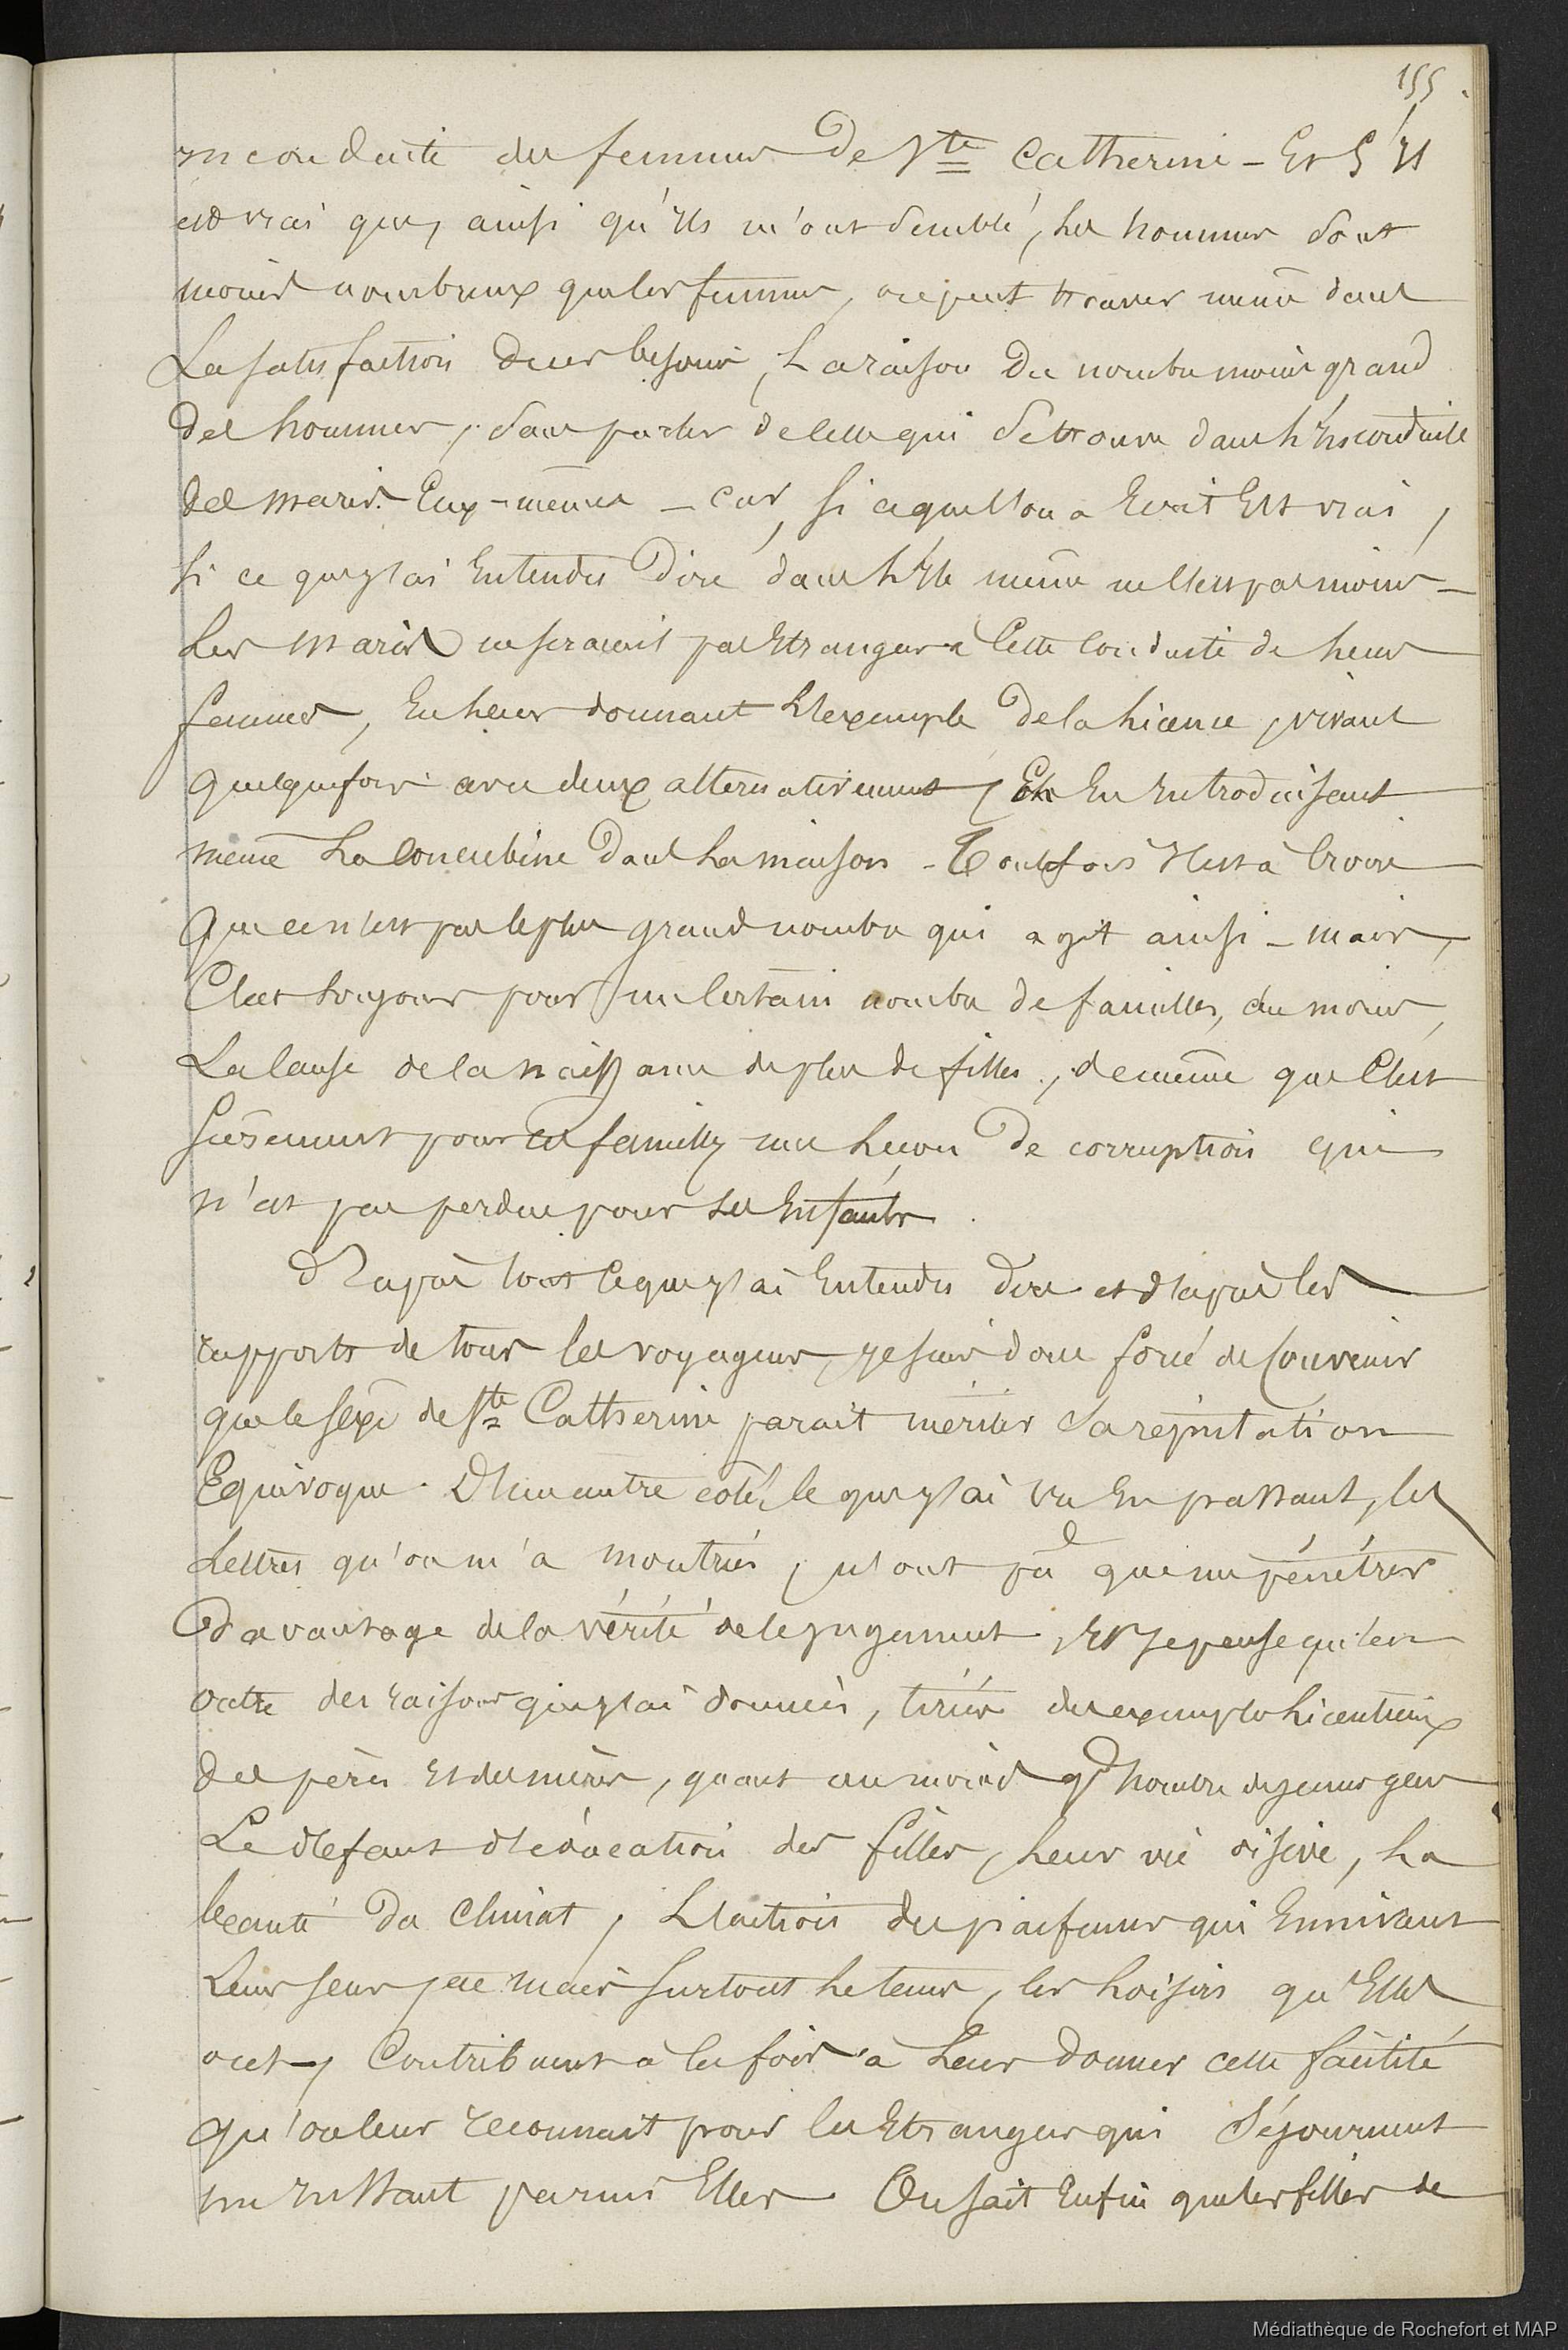 155.
inconduite des femmes de Ste Catherine – Et s'il
est vrai que, ainsi qu'ils m'ont semblé, les hommes sont
moins nombreux que les femmes, on peut trouver même dans
La satisfaction de ces besoins, La raison du nombre moins grand
des hommes, sans parler de celle qui se trouve dans L'Inconduite
des maris Eux-mêmes – car, si ce que l'on a Ecrit Est vrai,
si ce que j'ai Entendu Dire dans L'Ile même ne l'est pas moins –
Les Maris ne seraient pas Etrangers à Cette Conduite de Leurs
femmes, En Leur donnant L'exemple de la Licence, vivant
quelquefois avec deux alternativement, Et En Introduisant
même La Concubine dans La maison – Toutefois Il est à Croire
que ce n'est pas le plus grand nombre qui agit ainsi – mais,
C'est toujours pour un Certain nombre de familles, du moins,
La Cause de la naissance de plus de filles, de même que C'est
sûrement pour ces familles une Leçon de corruption qui
n'est pas perdue pour Les Enfants.
D'après tout Ce que j'ai Entendu dire et d'après les
rapports de tous les voyageurs, je suis donc forcé de Convenir
que le sexe de Ste Catherine parait mériter sa réputation
Equivoque. D'un autre côté, Ce que j'ai vu En passant, les
Lettres qu'on m'a montrées, n'ont pu que me pénétrer
Davantage de la vérité de ce jugement, Et Je pense qu'en
outre des raisons que j'ai données, tirées des exemples Licentieux
des pères et des mères, quant au moins gd nombre de jeunes gens
Le défaut d'éducation des filles, Leur vie oisive, La
beauté du Climat, L'action des parfums qui Ennivrent
Leurs sens, mais surtout Le tems, les Loisirs qu'Elles
ont, Contribuent à la fois à Leur donner cette facilité
qu'on leur reconnait pour les Etrangers qui Séjournent
un Instant parmi Elles. On sait Enfin que les filles de
Médiathèque de Rochefort et MAP